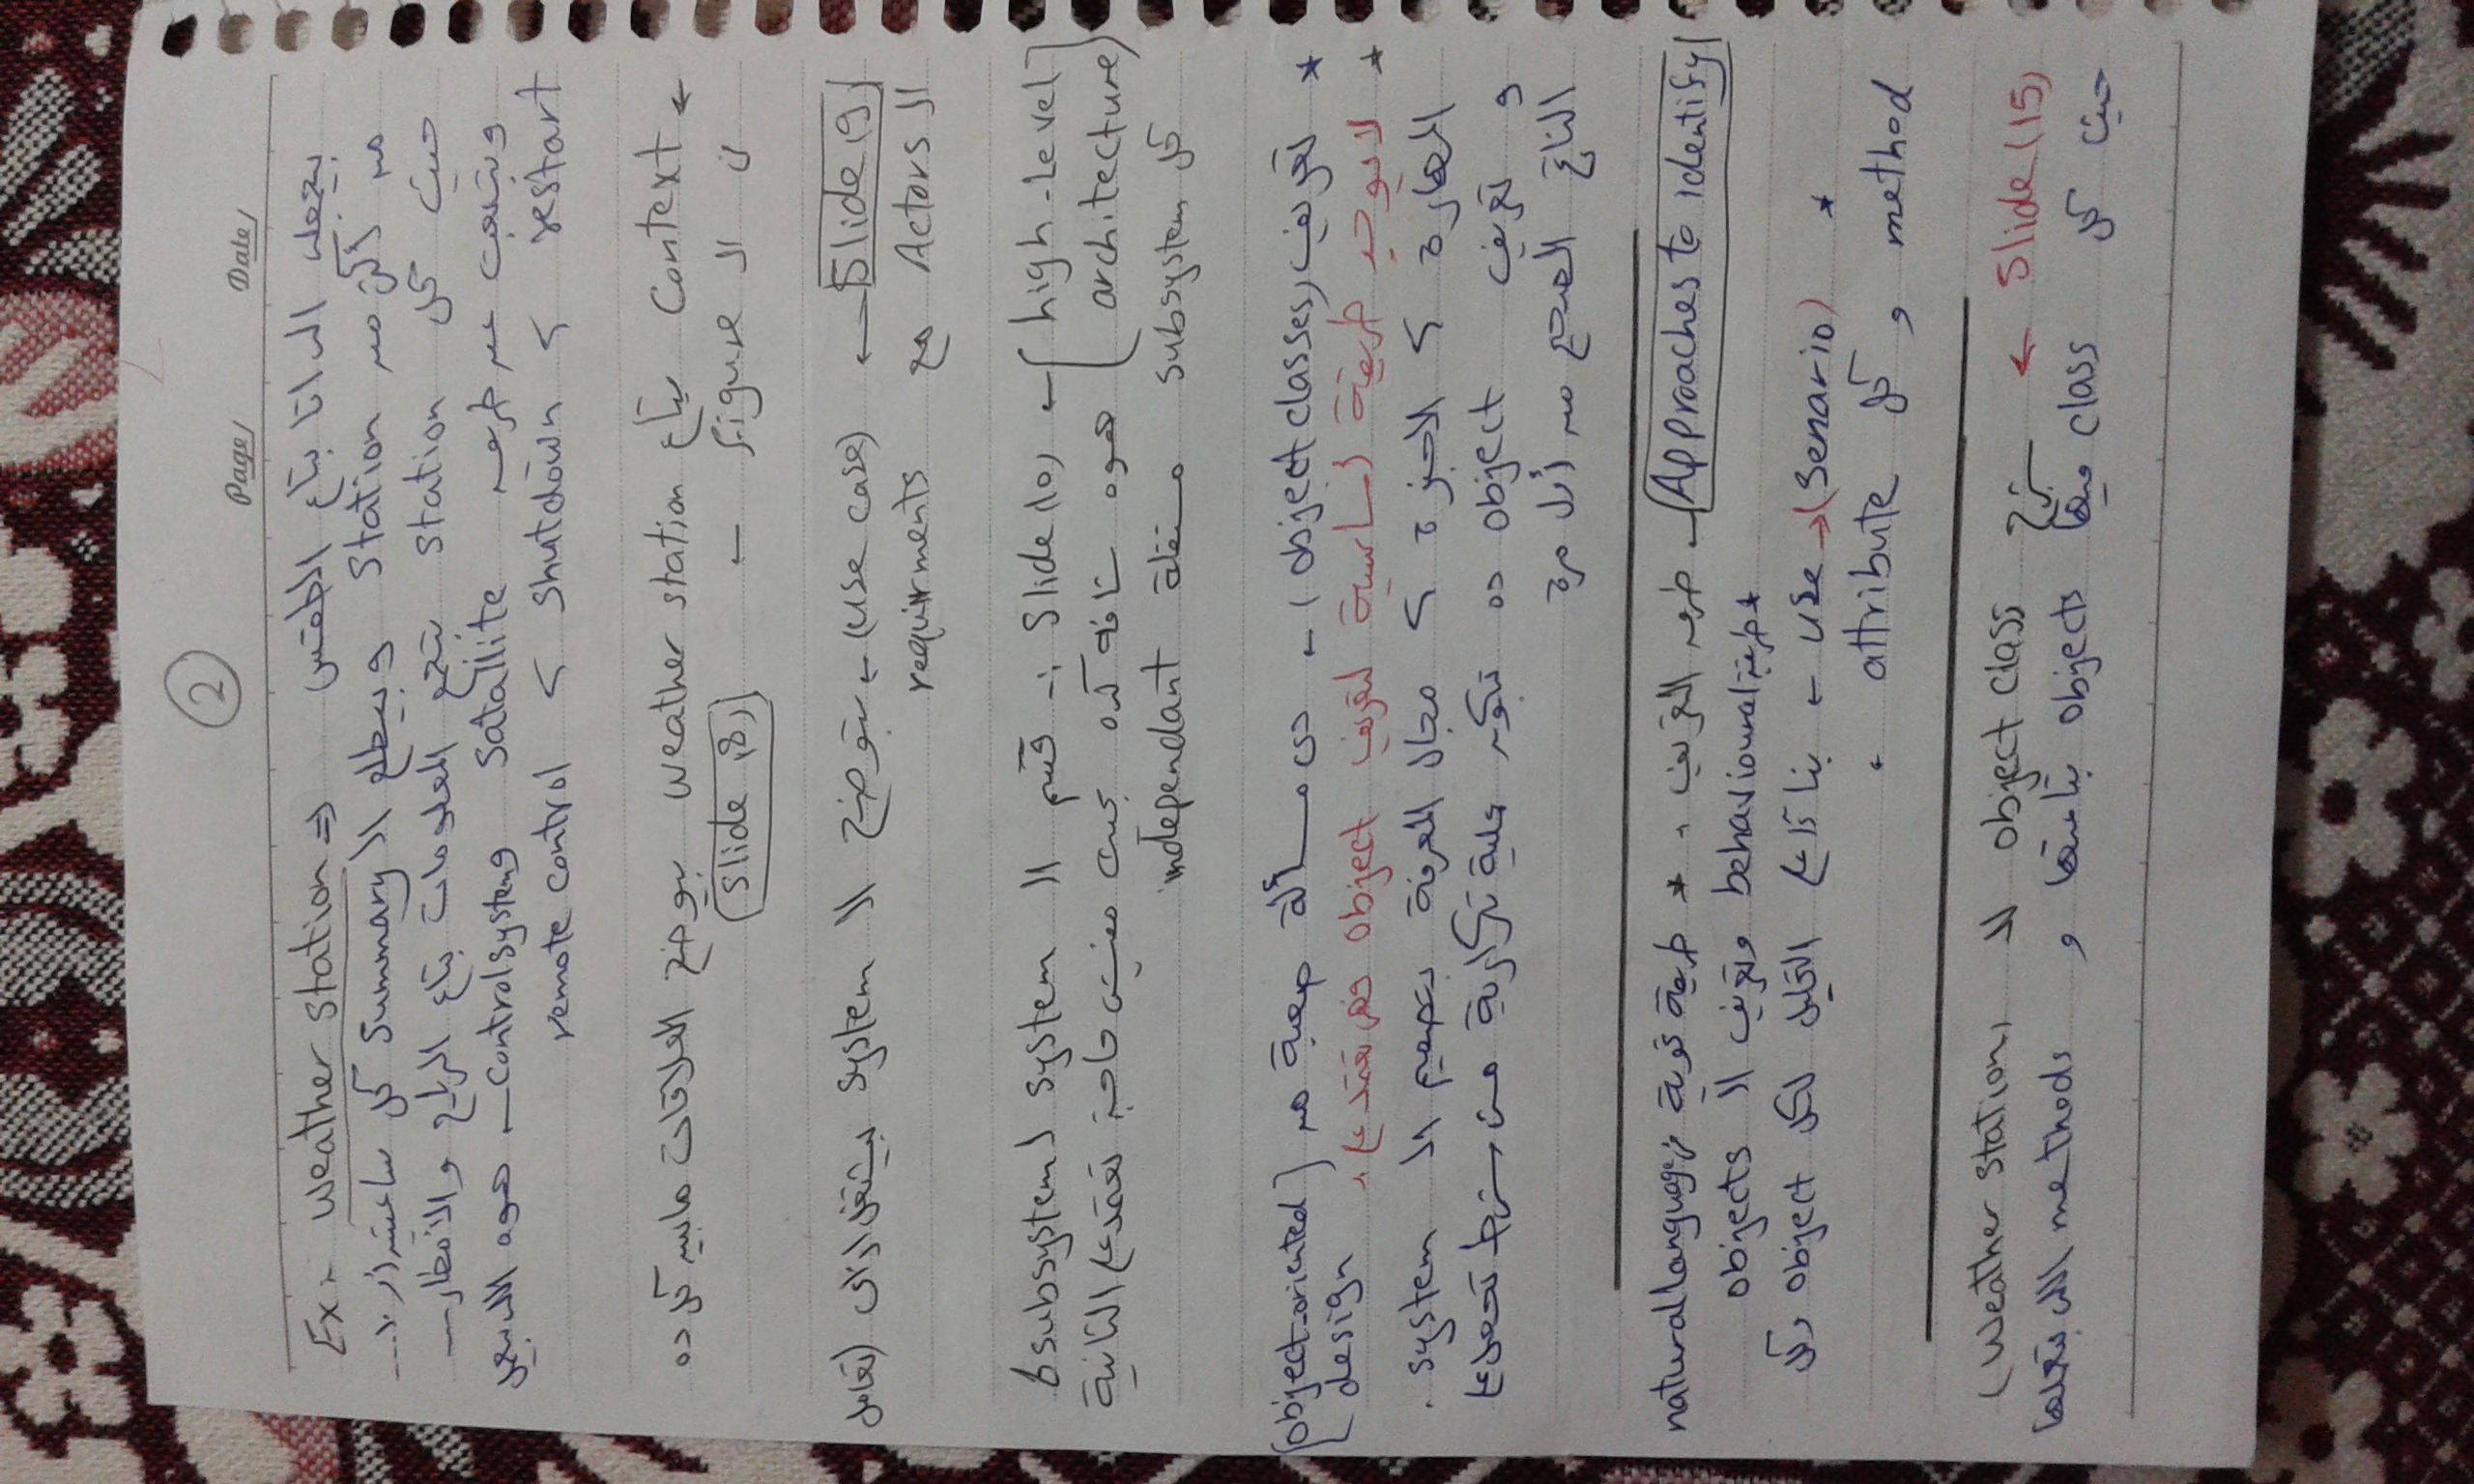 2
Page/ Date/
Ex:- Weather station => بيجمع الداتا بتاع الطقس
من أكتر من station وبيطلع الـ summary كل ساعتين أو ١٠ ...
حيث كل station بتجمع المعلومات بتاع الرياح والأمطار ...
وبتبعت عن طريق satallite و control system ← هوه اللى بيعمل
restart ، shutdown ، remote control
← Context بتاع weather station بيوضح العلاقات مابين كل ده
فى الـ figure ← [slide (8)]
[Slide (9)] ← (use case) ← بتوضح الـ system بيشتغل ازاى (تعامل
الـ Actors مع requirments
[high-Level architecture] ← Slide (10) :- قسم الـ system لـ 6 subsystem
هوه شافه كده بحيث مفيش حاجة تعتمد على التانية
كل subsystem مستقلة independant
* تعريف (object classes) ← دى مسألة صعبة من [object-oriented design]
* لا يوجد طريقة أساسية لتعريف object فهى تعتمد على
المهارة ، الخبرة ، مجال المعرفة بتصميم الـ system .
و تعريف object ده بتكون عملية تكرارية مش شرط تحصل على
الناتج الصحيح من أول مرة
[Approaches to identify] ← طرق التعريف * طريقة natural language
* طريقة behavioural وتعريف الـ objects
* use → (senario) ← بناءً على التحليل لكل object وكل
method و كل attribute .
Slide (15) ← شرح object class للـ (Weather station)
حيث كل class فيها objects بتاعتها و methods اللى بتعملها